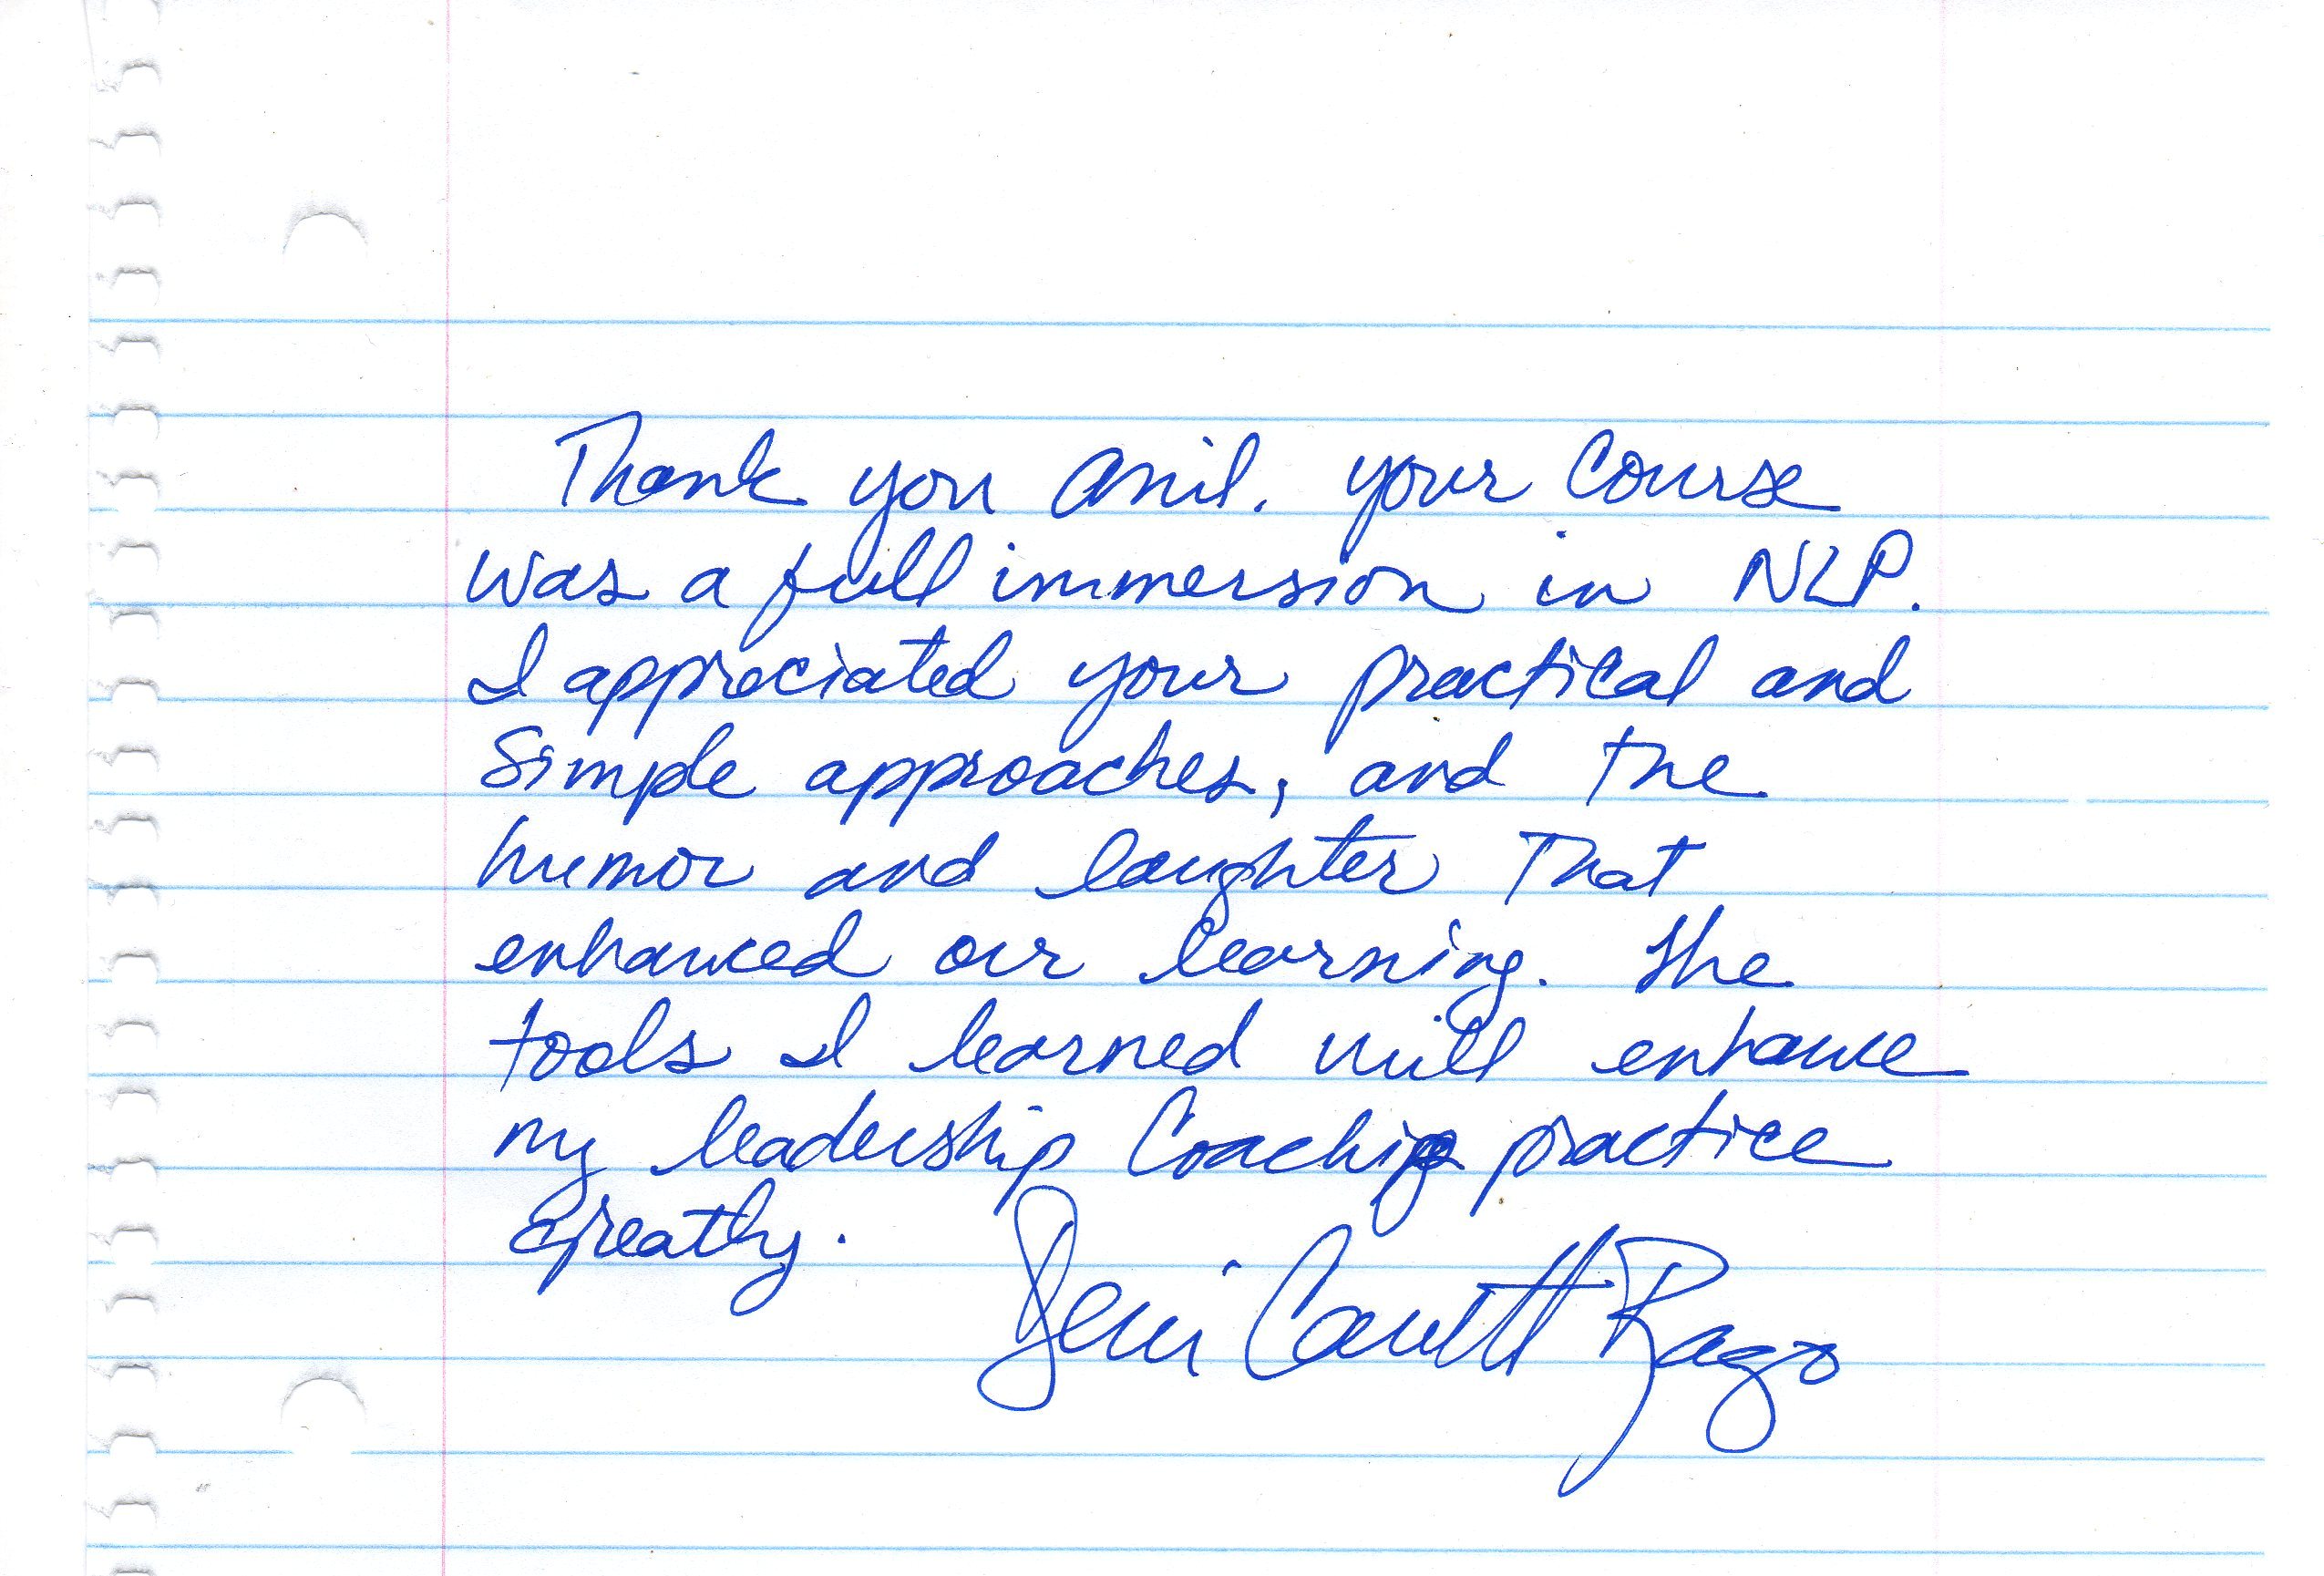 Thank you Anil. your Course
was a full immersion in NLP.
I appreciated your practical and
Simple approaches, and the
humor and laughter that
enhanced our learning. The
tools I learned will enhance
my leadership Coaching practice
greatly.
Rago